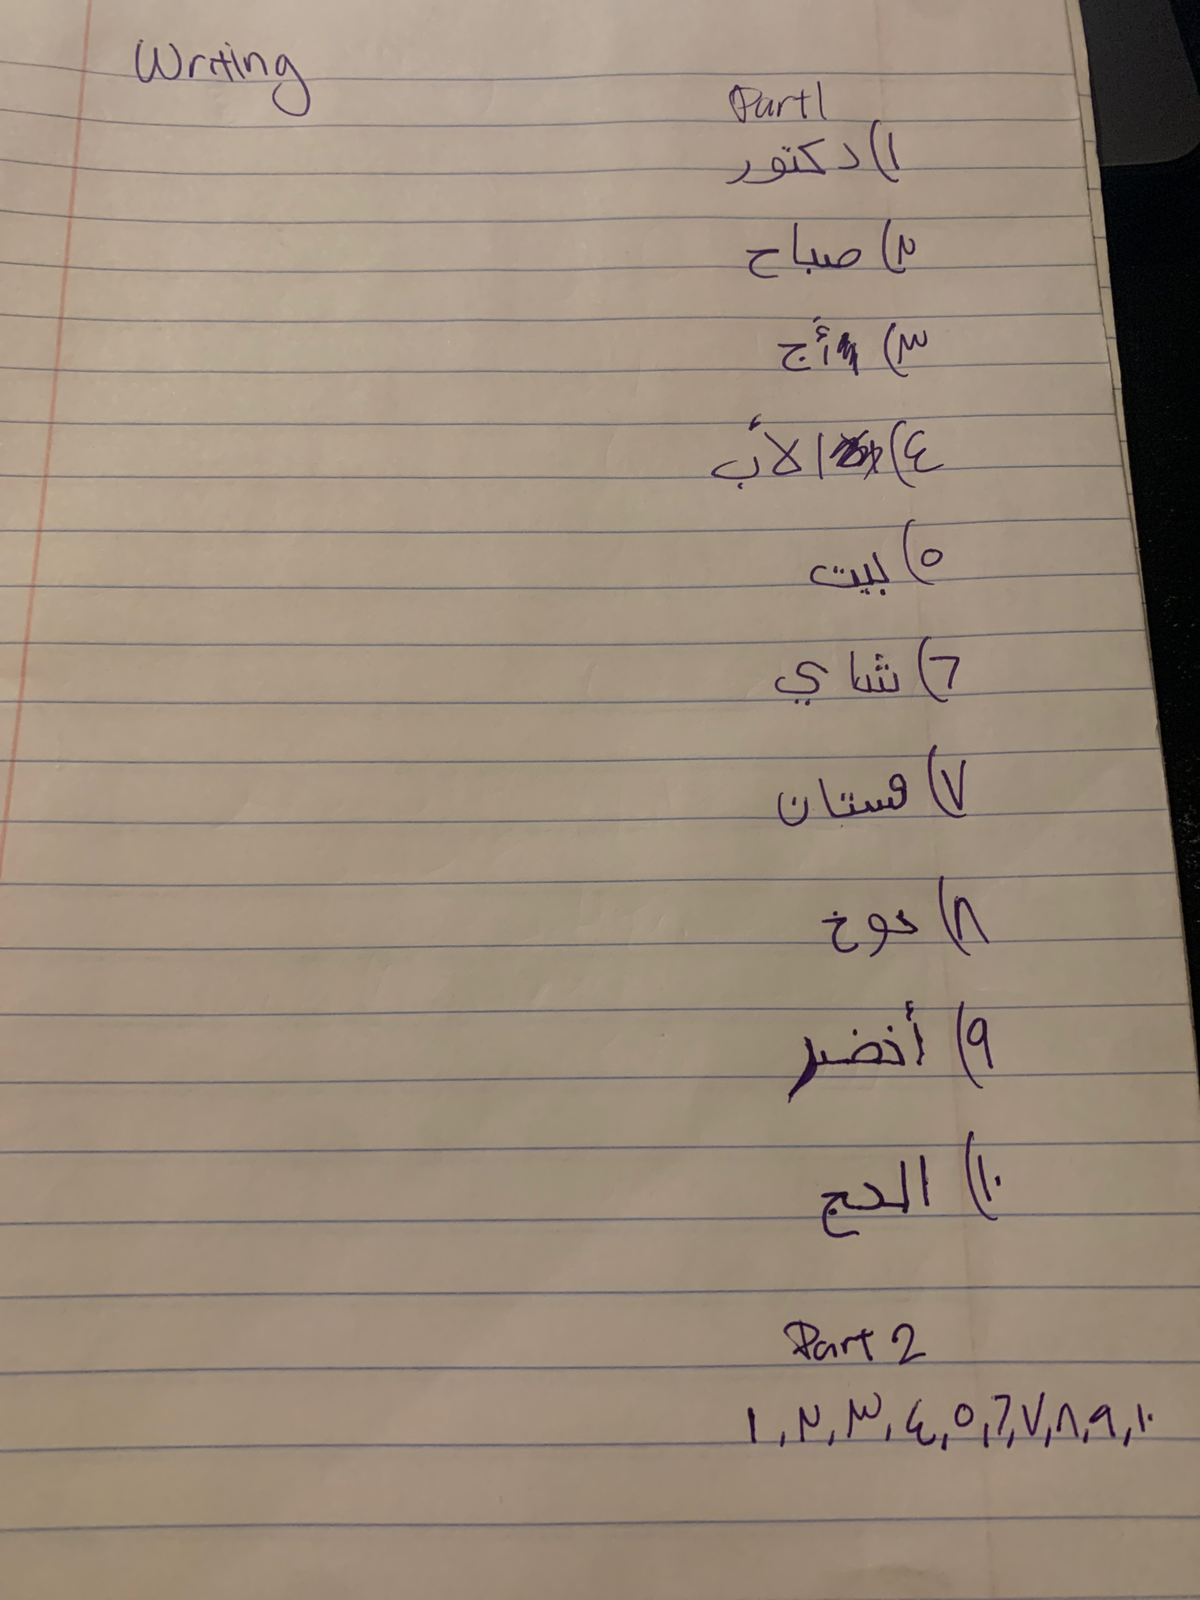 Writing
Part 1
١) دكتور
٢) صباح
٣) أج
٤) الأب
٥) بيت
٦) شاي
٧) فستان
٨) خوخ
٩) أخضر
١٠) الحج
Part 2
١, ٢, ٣, ٤, ٥, ٦, ٧, ٨, ٩, ١٠